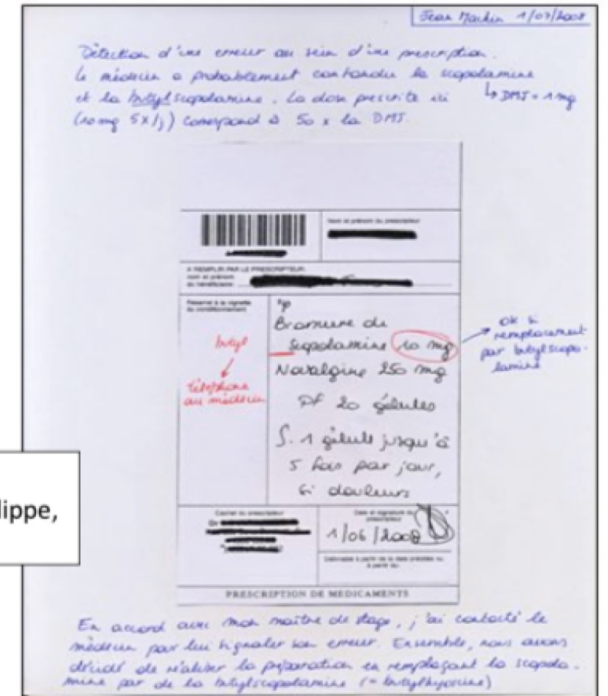 Jean Machin 1/07/2008
Détection d'une erreur au sein d'une prescription.
Le médecin a probablement confondu la scopolamine
et la butylscopolamine. La dose prescrite ici
↳ DMJ = 1 mg
(10 mg 5x/j) correspond à 50 x la DMJ.
Nom et prénom du prescripteur
A REMPLIR PAR LE PRESCRIPTEUR:
nom et prénom
du bénéficiaire
Réservé à la vignette
du conditionnement
R/
Bromure de
Scopolamine 10 mg
Novalgine 250 mg
Df 20 gélules
S. 1 gélule jusqu'à
5 fois par jour,
si douleurs
butyl
↓
Téléphone
au médecin
ok si
remplacement
par butylscopo-
lamine
lippe,
Cachet du prescripteur
Dr
Date et signature du
prescripteur
1/06/2008
PRESCRIPTION DE MEDICAMENTS
En accord avec mon maître de stage, j'ai contacté le
médecin pour lui signaler son erreur. Ensemble, nous avons
décidé de réaliser la préparation en remplaçant la scopola-
mine par de la butylscopolamine (= butylhyoscine)